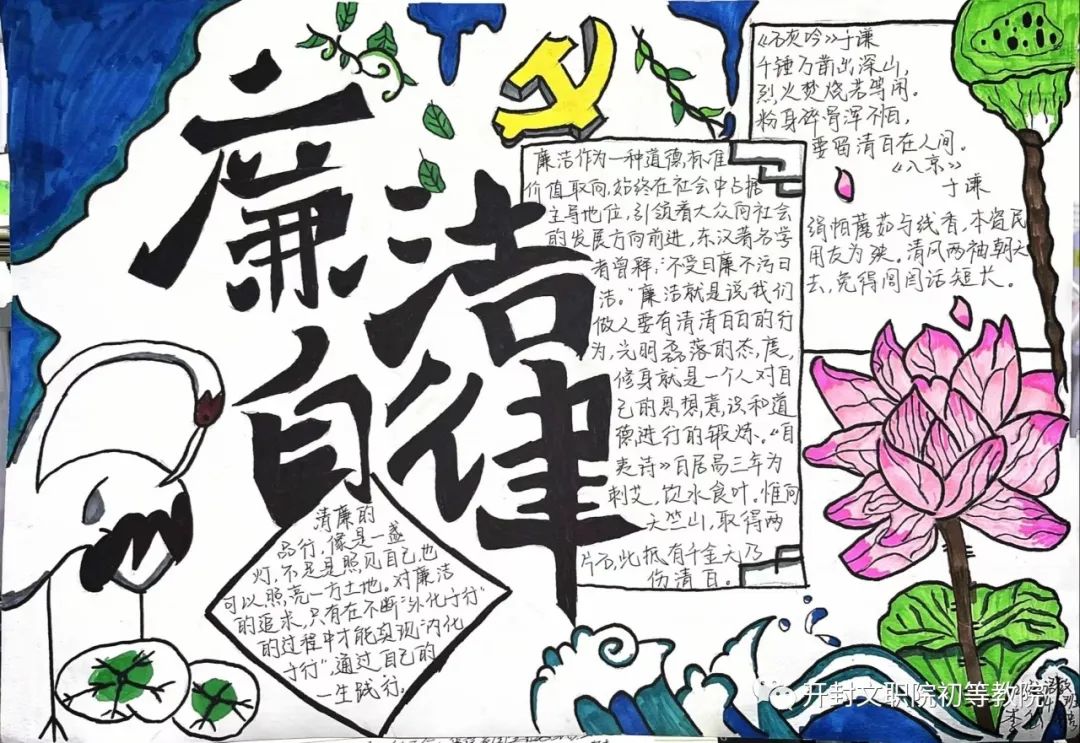 廉洁
自律
《石灰吟》于谦
千锤万凿出深山，
烈火焚烧若等闲。
粉身碎骨浑不怕，
要留清白在人间。
《入京》
于谦
绢帕蘑茹与线香，本资民
用反为殃。清风两袖朝天
去，免得闾阎话短长。
廉洁作为一种道德标准
价值取向，始终在社会中占据
主导地位，引领着大众向社会
的发展方向前进，东汉著名学
者曾释："不受曰廉不污曰
洁。"廉洁就是说我们
做人要有清清白白的行
为，光明磊落的态度，
修身就是一个人对自
己的思想意识和道
德进行的锻炼。《自
夷诗》白居易三年为
刺艾，饮水食叶。惟向
天竺山，取得两
片石，此抵有千金无乃
伤清白。
清廉的
品行，像是一盏
灯，不足是照见自己也
可以照亮一方土地。对廉洁
的追求，只有在不断"外化于行"
的过程中才能实现"内化
于行"，通过自己的
一生践行。
开封文职院初等教院